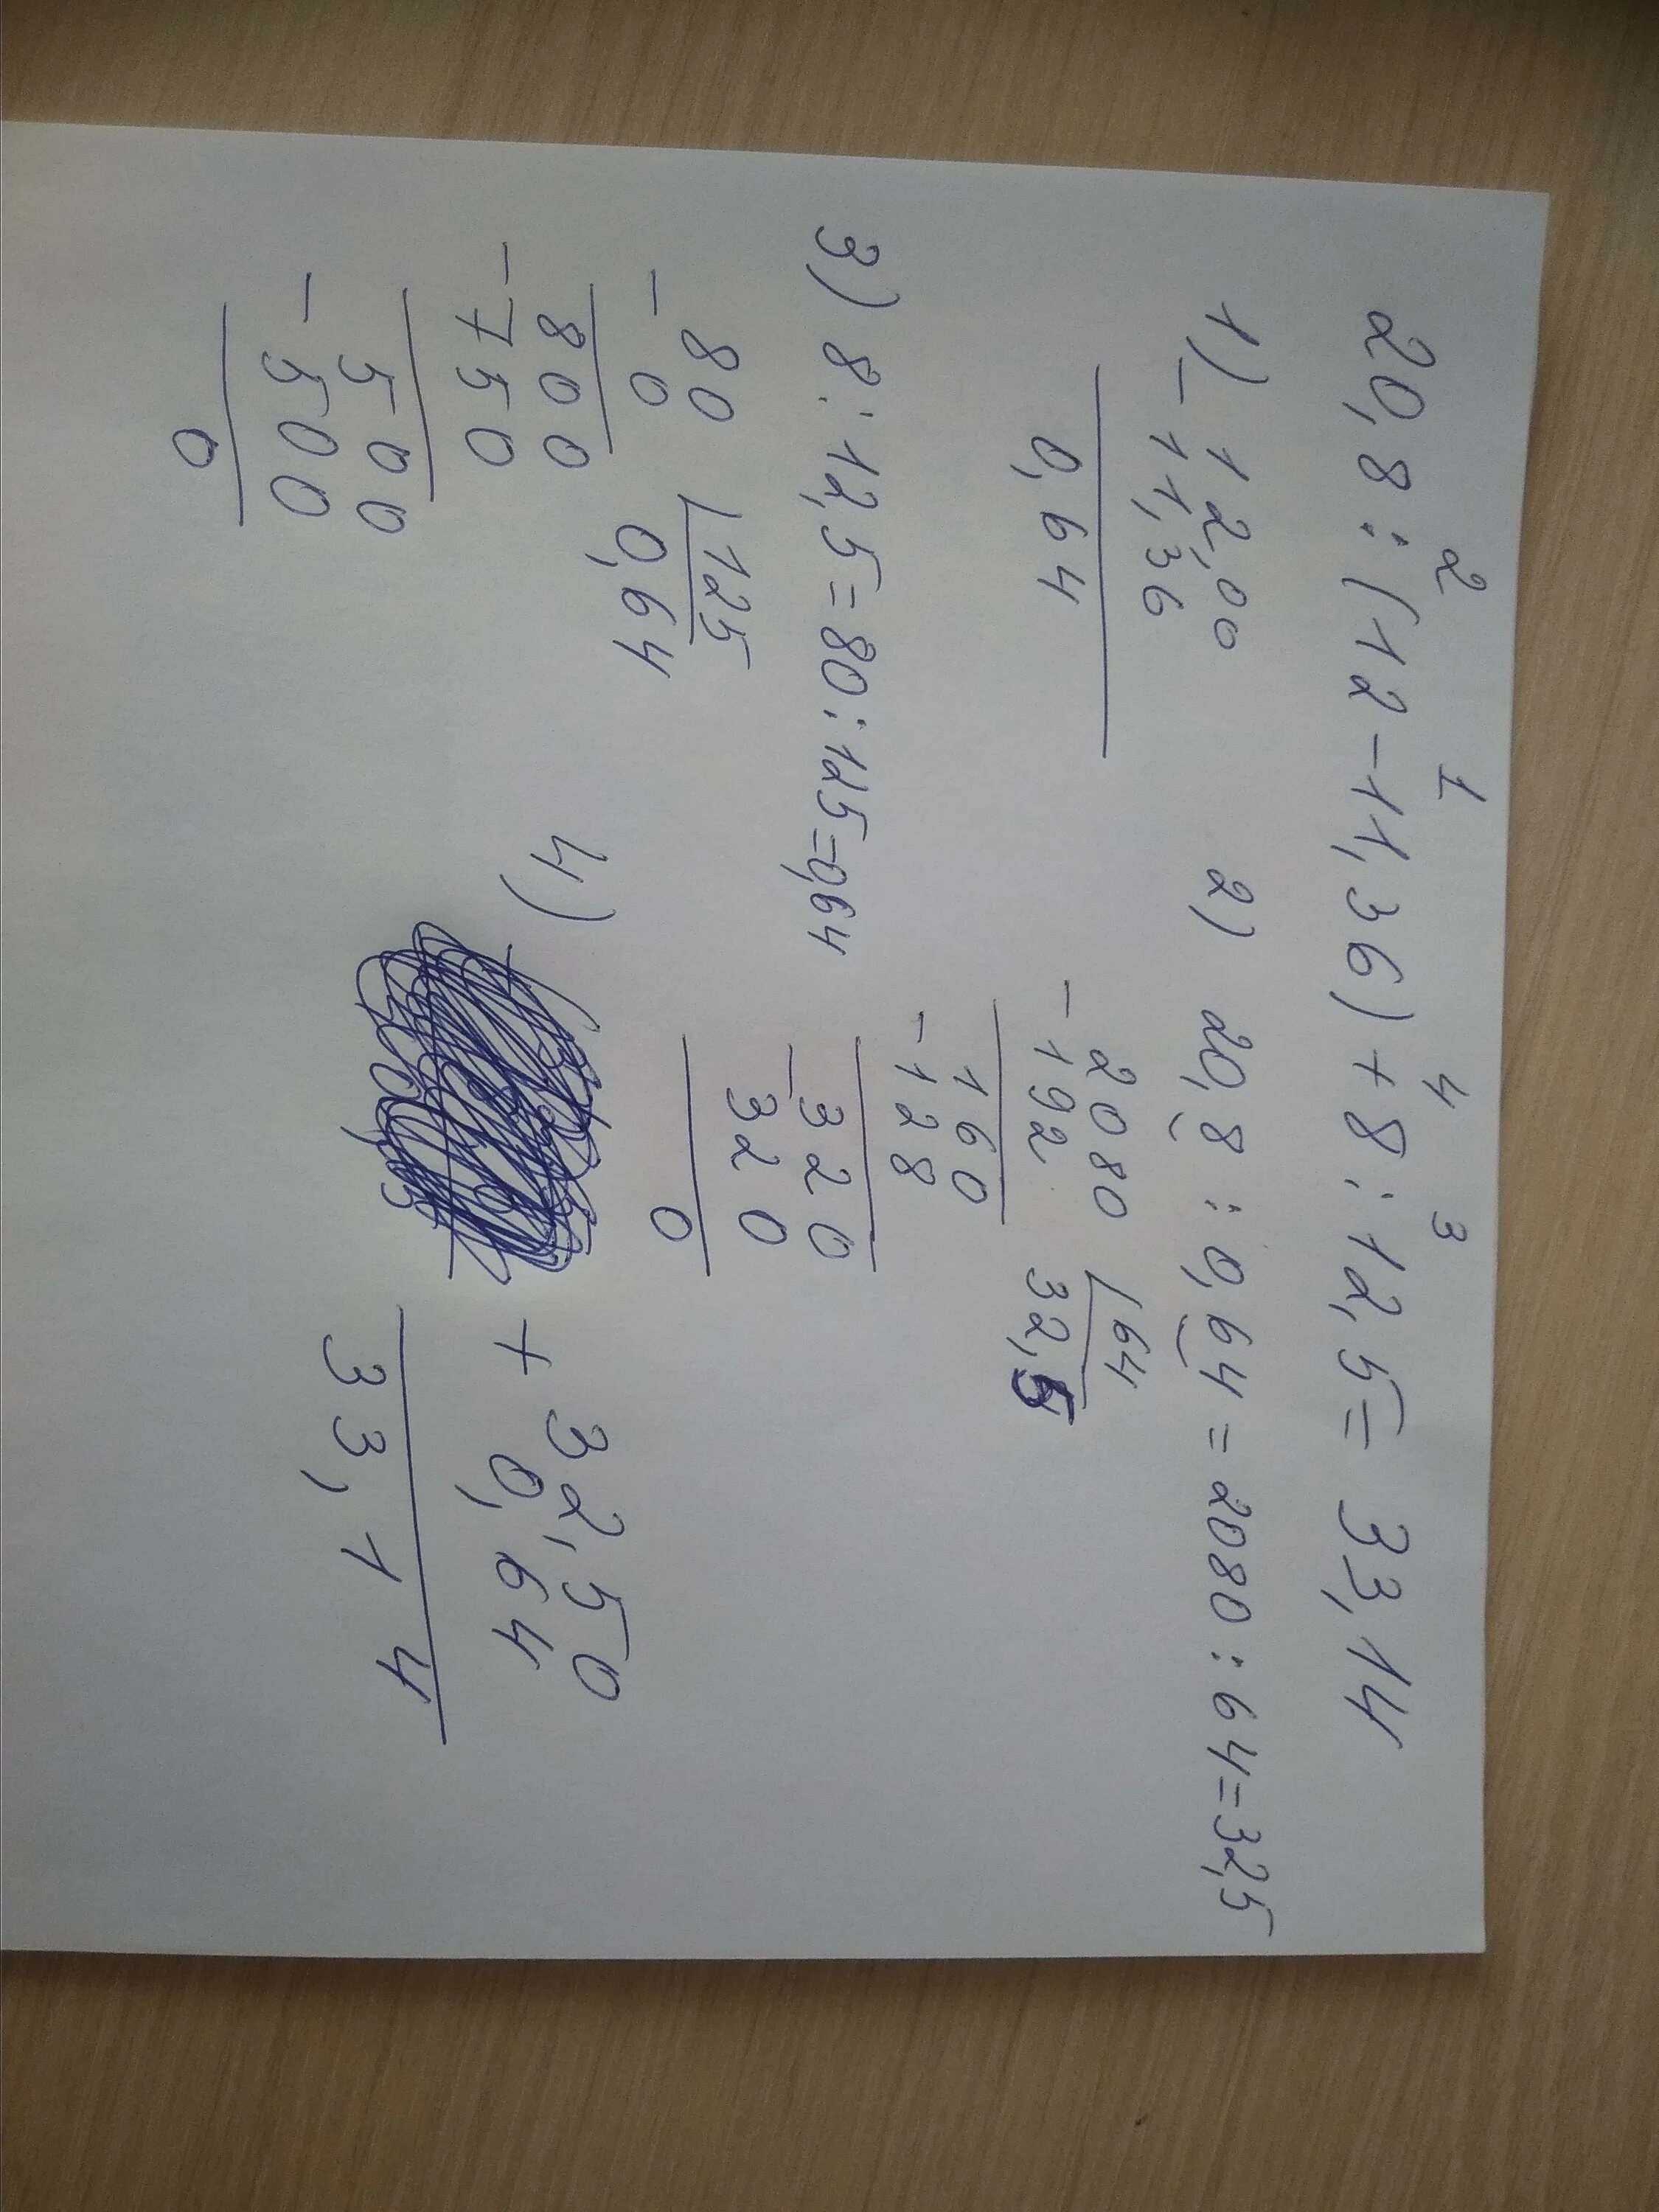 2 1 4 3
20,8 : (12 - 11,36) + 8 : 12,5 = 33,14
1) - 12,00
11,36
0,64
2) 20,8 : 0,64 = 2080 : 64 = 32,5
2080 | 64
- 192 32,5
160
- 128
- 320
320
0
3) 8 : 12,5 = 80 : 125 = 0,64
80 | 125
- 0 0,64
800
- 750
500
- 500
0
4) 32,50
+ 0,64
33,14